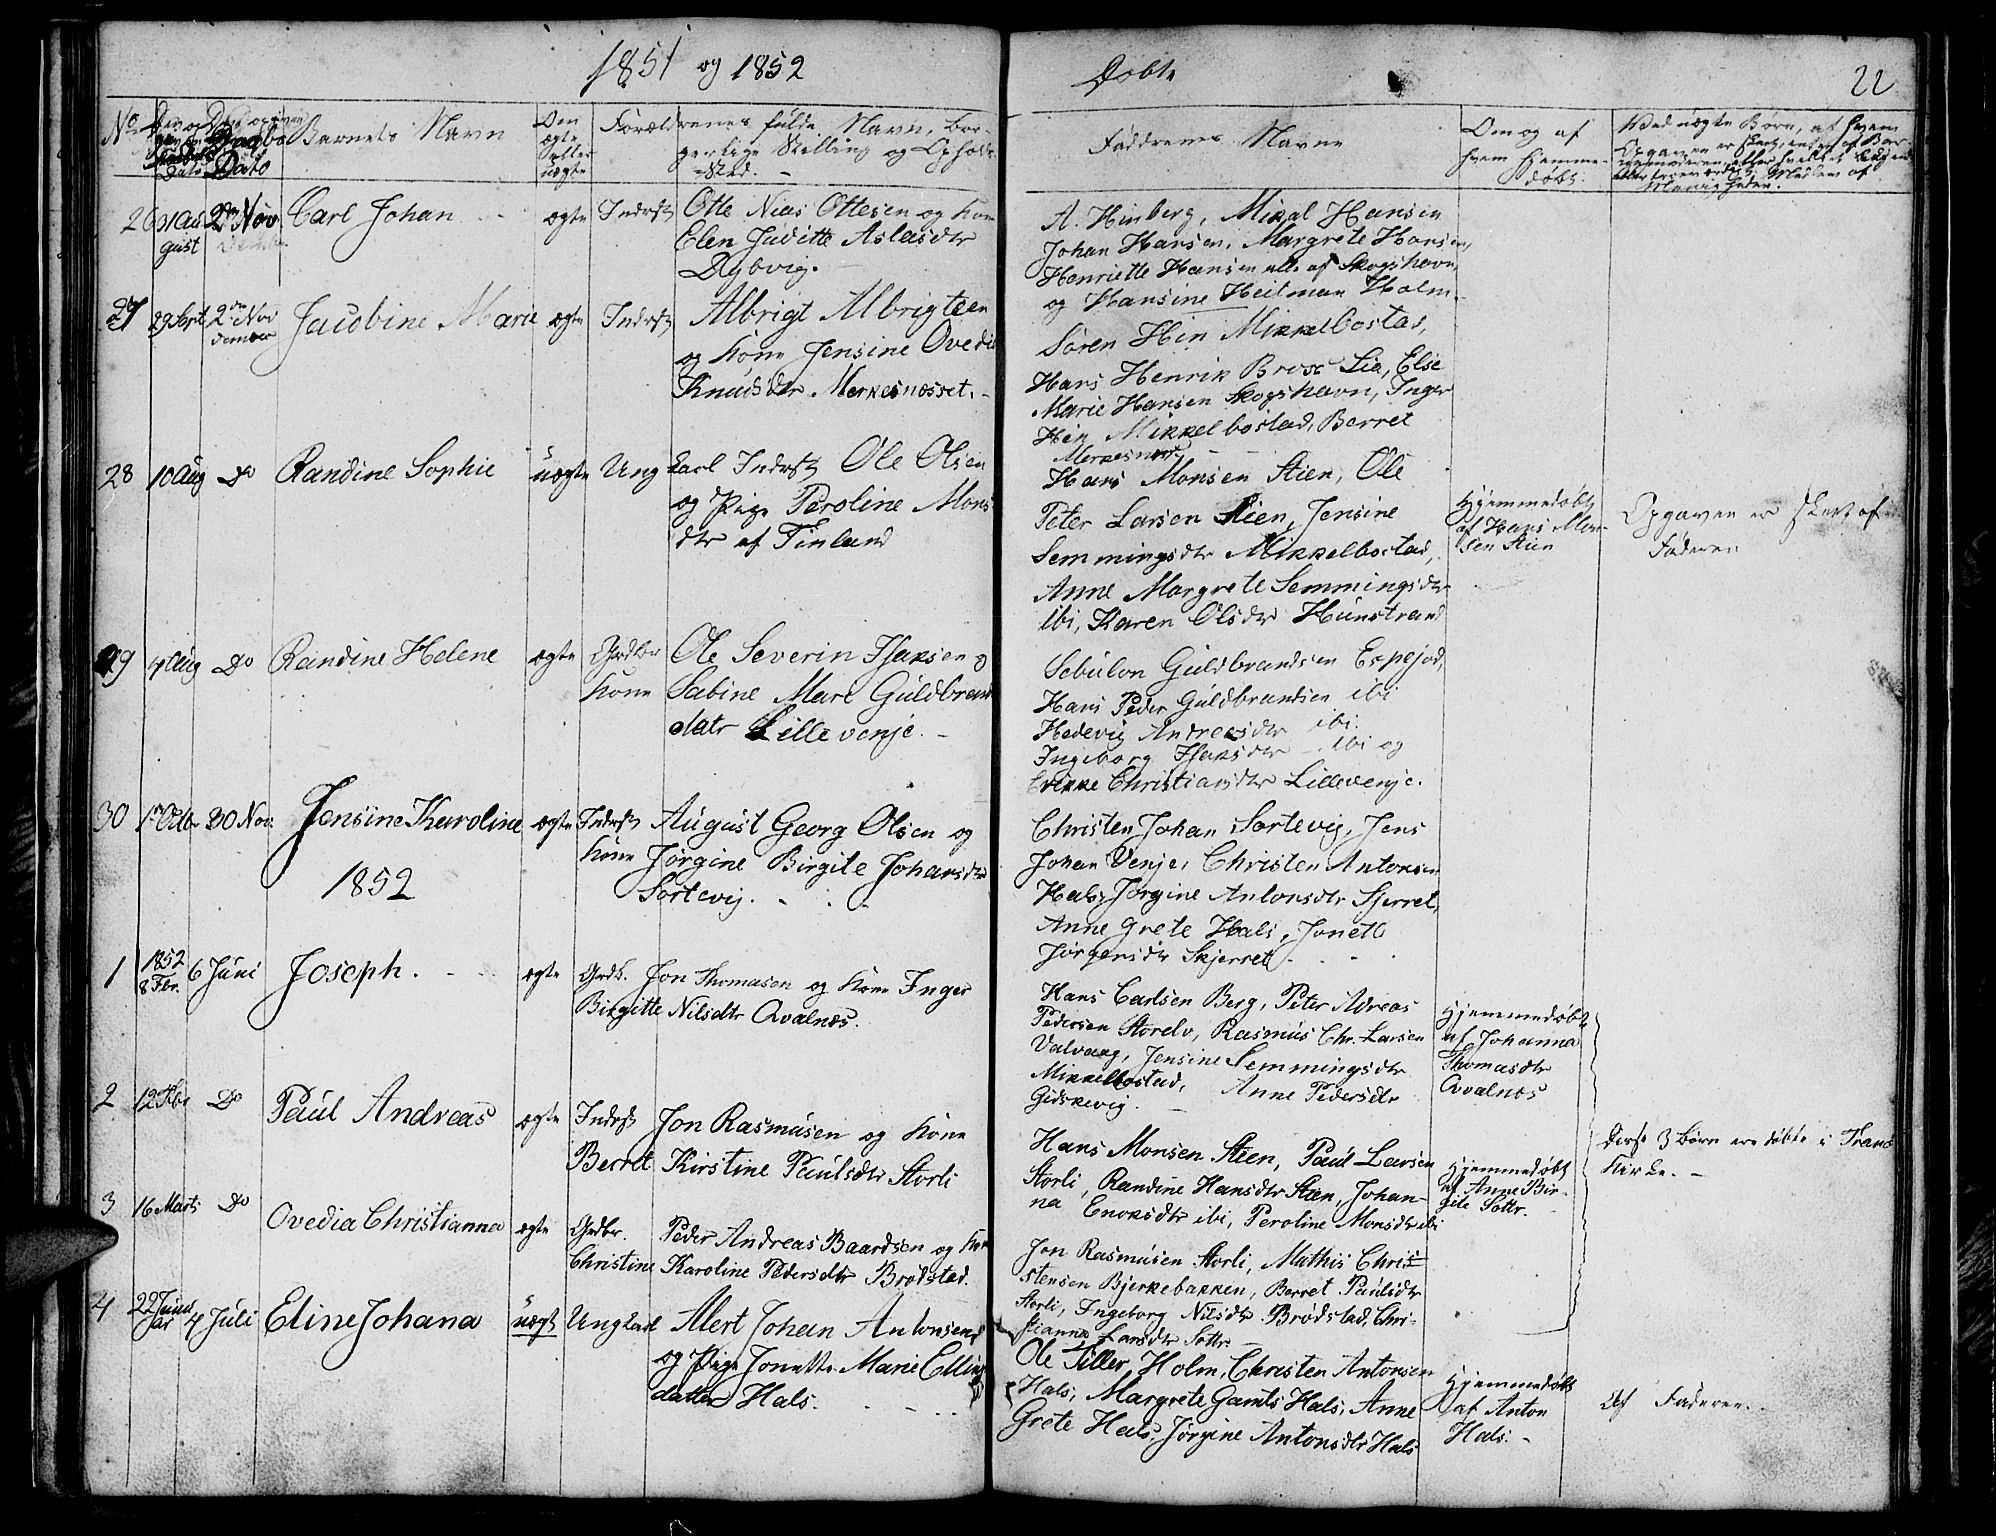 1851 og 1852
Døbte
22
No
Dato
Dato
Barnets Navn
Om ægte eller uægte
Forældrenes fulde Navn, bor-
gerlige Stilling og Opholds-
sted.
Faddrenes Navne
Om og af
hvem hjemme-
døbt.
Ved uægte Børn, af hvem
Opgaven er skeet
26
31 Au
gust
2den Nov
Carl Johan
ægte
Inderst
Otte Nias Ottesen og Kone
Elen Juditte Aslasdtr
Dybvig.
A. Hinberg, Mikal Hansen
Johan Hansen, Margrete Hansen,
Henriette Hansen alle af Skogshavn,
og Hansine Heitman Holm.
27
29 Sept
2den Nov
Jacobine Marie
ægte
Inderst
Albrigt Albrigtsen
og Kone Jensine Ovedia
Knudsdtr Merkesnæsset.
Søren Hein Mikkelbostad,
Hans Henrik Brox Lie, Else
Marie Hansen Skogshavn, Inger
Hein Mikkelbostad, Berret
Merkesnæs
28
10 Aug
Do
Randine Sophie
uægte
Ung
karl Inderst Ole Olsen
og Pige Peroline Mons
dtr af Finland
Hans Monsen Stien, Ole
Peter Larsen Stien, Jensine
Semmingsdtr Mikkelbostad,
Anne Margrete Semmingsdtr
ibi, Karen Olsdtr Hunstrand
Hjemmedøbt
af Hans Mon-
sen Stien
Opgaven er skeet af
Faderen
29
4 Aug
Do
Randine Helene
ægte
Grdbr
Kone
Ole Severin Isaksen og
Sabine Mari Guldbrand
datr Lillevenje.
Sebulon Guldbrandsen Espejod,
Hans Peder Guldbrandsen ibi
Hedevig Andreasdtr ibi.
Ingeborg Isaksdtr ibi og
Erikke Christiansdtr Lillevenje.
30
1 Octbr
30 Nov.
Jensine Karoline
ægte
Inderst
Kone
August Georg Olsen og
Jørgine Birgite Johansdtr
Sortevig.
Christen Johan Sortevig, Jens
Johan Venje, Christen Antonsen
Hals, Jørgine Antonsdtr Sjerret,
Anne Grete Hals, Joneth
Jørgensdtr Skjerret
1852
1
1852
8 Fbr.
6 Juni
Joseph.
ægte
Grdb.
Jon Thomasen og Kone Inger
Birgitte Nilsdtr Qvalnæs.
Hans Carlsen Berg, Peter Adreas
Pedersen Storelv, Rasmus Chr. Larsen
Valvaag, Jensine Semmingsdtr
Mikkelbostad, Anne Pedersdtr
Gidskevig.
Hjemmedøbt
af Johanna
Thomasdtr
Qvalnæs
2
12 Fbr
Do
Paul Andreas
ægte
Inderst
Jon Rasmusen og Kone
Berret Kirstine Paulsdtr Storli
Hans Monsen Stien, Paul Larsen
Storli, Randine Hansdtr Stien, Johan-
na Enoksdtr ibi, Peroline Monsdtr ibi
Hjemmedøbt
af Anne Bir-
gite Sottr.
Disse 3 børn ere døbte i Tranø
Kirke.
3
16 Marts
Do
Ovedia Christianna
ægte
Grdbr.
Peder Andreas Baardsen og Kone
Christine Karoline Pedersdtr Brødstad.
Jon Rasmusen Storli, Mathis Chri-
stensen Bjerkebakken, Berret Paulsdtr
Storli, Ingeborg Nilsdtr Brødstad, Chri-
stianna Larsdtr Sottr
4
22 Janu
ar
4 Juli
Eline Johana
uægt
Ungkarl
Alert Johan Antonsen
og Pige Jonetta Marie Elling
datter Hals.
Ole Tiller Holm, Christen Antonsen
Hals, Margrete Gamts Hals, Anne
Grete Hals, Jørgine Antonsdtr Hals
Hjemmedøbt
af Anton
Hals.
Af Faderen.